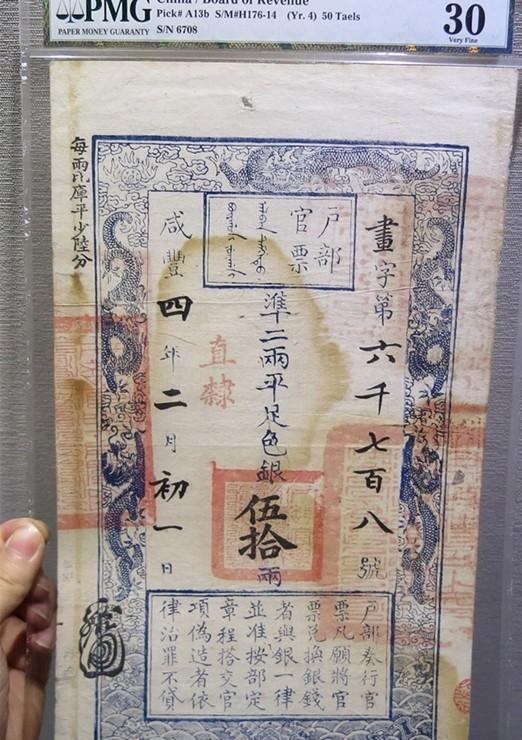 PMG
PAPER MONEY GUARANTY
China / Board of Revenue
Pick# A13b S/M#H176-14 (Yr. 4) 50 Taels
S/N 6708
30
Very Fine
每兩比庫平少陸分
戶部
官票
畫字第六千七百八號
準二兩平足色銀伍拾兩
直隸
咸豐四年二月初一日
戶部奏行官
票凡願將官
票兌換銀錢
者與銀一律
並准按部定
章程搭交官
項偽造者依
律治罪不貸